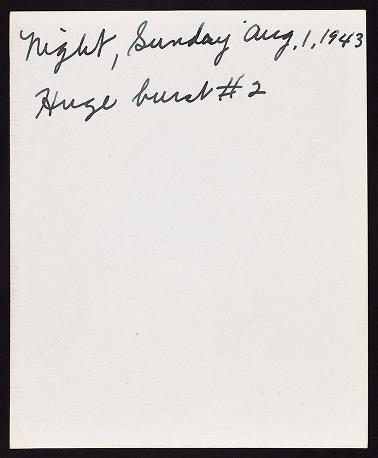 Night, Sunday Aug. 1, 1943
Huge burst #2